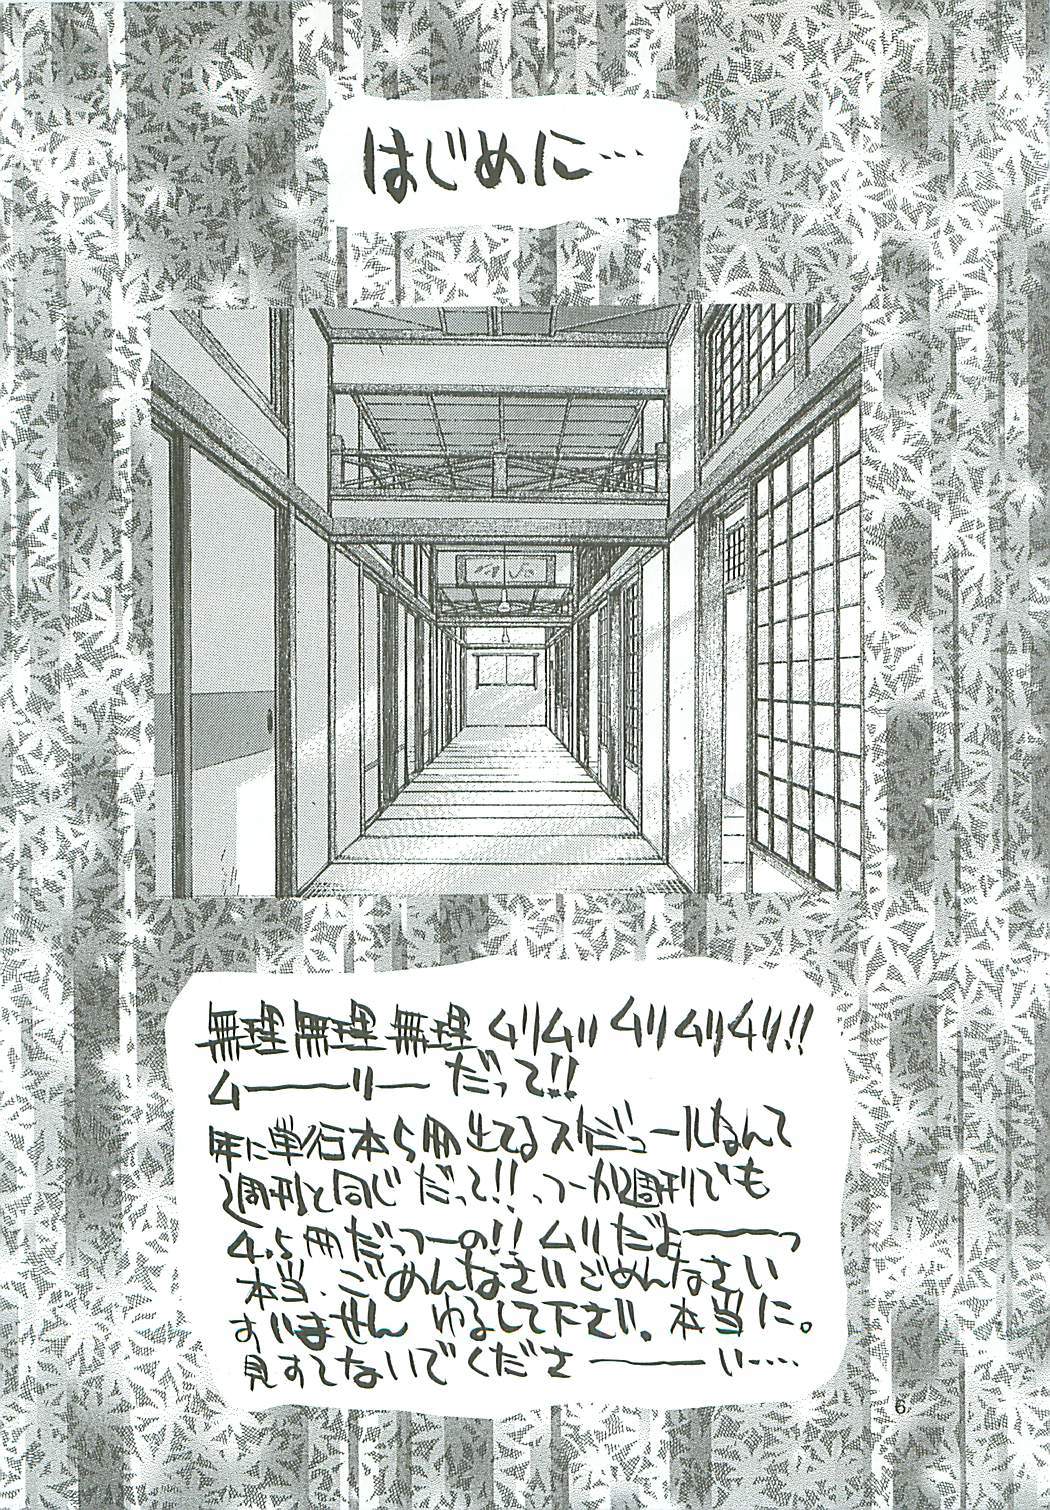 はじめに…
無理無理無理 ムリムリ ムリムリムリ!!
ムーーリー だって!!
年に単行本5冊出てるスケジュールなんて
週刊と同じだって!! つーか週刊でも
4、5冊だっつーの!! ムリだよーーっ
本当、ごめんなさいごめんなさい
すいません ゆるして下さい。本当に。
見すてないでくださーーい……
6